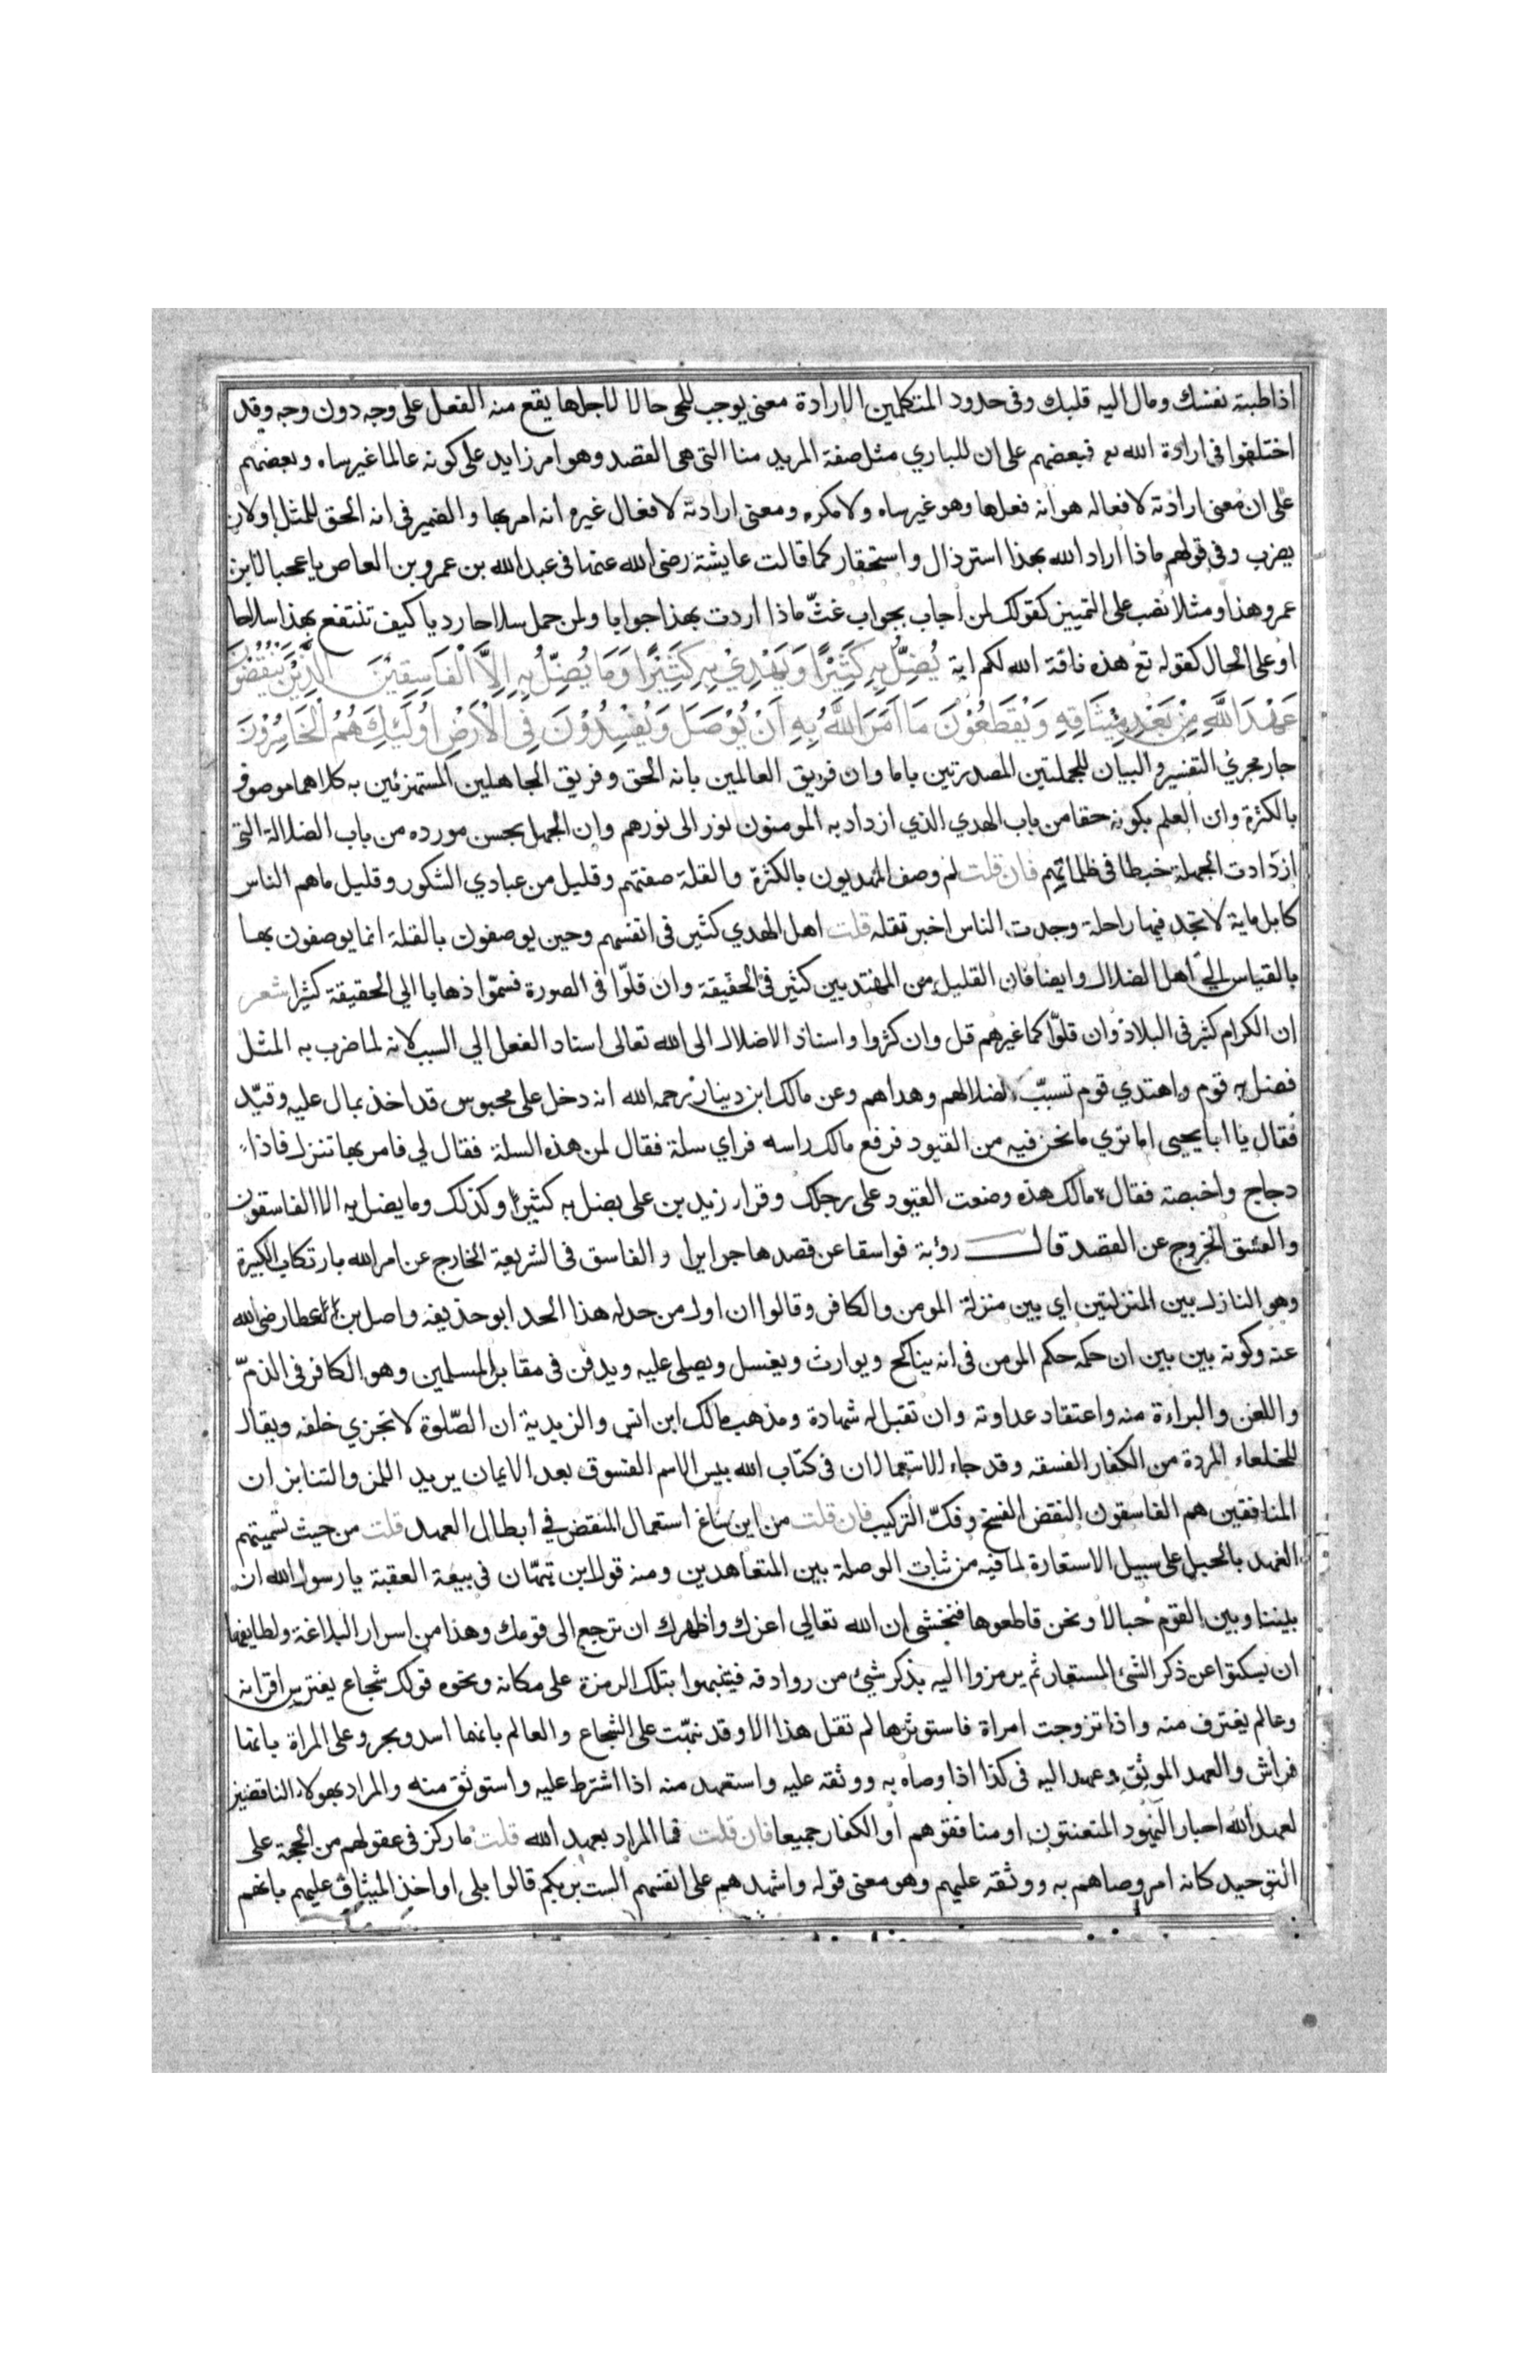 اذا طلبته نفسك ومال اليه قلبك وفى حدود المتكلمين الارادة معنى يوجب للحى حالا لاجلها يقع منه الفعل على وجه دون وجه وقد
اختلفوا فى ارادة الله تع فبعضهم على ان للباري مثل صفة المريد منا التى هى القصد وهو امر زايد على كونه عالما غير ساه وبعضهم
على ان معنى ارادته لافعاله هو انه فعلها وهو غير ساه ولا مكره ومعنى ارادته لافعال غيره انه امر بها والضمير فى انه الحق للمثل او لان
يضرب وفى قولهم ماذا اراد الله بهذا استرذال واستحقار كما قالت عايشة رضى الله عنها فى عبد الله بن عمرو بن العاص يا عجبا لابن
عمرو هذا ومثلا نصب على التمييز كقولك لمن اجاب بجواب غثّ ماذا اردت بهذا جوابا ولمن حمل سلاحا رديا كيف تنتفع بهذا سلاحا
او على الحال كقوله تع هذه ناقة الله لكم اية يُضِلُّ بِهِ كَثِيْرًا وَيَهْدِيْ بِهِ كَثِيْرًا وَمَا يُضِلُّ بِهِ اِلاَّ الْفَاسِقِيْنَ الَّذِيْنَ يَنْقُضُوْنَ
عَهْدَ اللَّهِ مِنْ بَعْدِ مِيْثَاقِهِ وَيَقْطَعُوْنَ مَا اَمَرَ اللَّهُ بِهِ اَنْ يُوْصَلَ وَيُفْسِدُوْنَ فِى الْاَرْضِ اُولَئِكَ هُمُ الْخَاسِرُوْنَ
جار مجري التفسير والبيان للجملتين المصدرتين باما وان فريق العالمين بانه الحق وفريق الجاهلين المستهزئين به كلاهما موصوف
بالكثرة وان العلم بكونه حقا من باب الهدي الذي ازداد به المومنون نورا الى نورهم وان الجهل بحسن مورده من باب الضلالة التى
ازدادت الجهلة خبطا فى ظلماتهم فان قلت لم وصف المهديون بالكثرة والقلة صفتهم وقليل من عبادي الشكور وقليل ماهم الناس
كابل ماية لا تجد فيها راحلة وجدت الناس اخبر تقله قلت اهل الهدي كثير فى انفسهم وحين يوصفون بالقلة انما يوصفون بها
بالقياس الي اهل الضلال وايضا فان القليل من المهتديين كثير فى الحقيقة وان قلّوا فى الصورة فسمّوا ذهابا الي الحقيقة كثيرا شعر
ان الكرام كثير فى البلاد وان قلوّا كما غيرهم قل وان كثروا واسناد الاضلال الى الله تعالى اسناد الفعل الي السبب لانه لما ضرب به المثل
فضل به قوم واهتدي قوم تسبّب لضلالهم وهداهم وعن مالك ابن دينار رحمه الله انه دخل على محبوس قد اخذ بمال عليه وقيّد
فقال يا ابا يحيى اما تري ما نحن فيه من القيود فرفع مالك راسه فراي سلة فقال لمن هذه السلة فقال لي فامر بها تنزل فاذا
دجاج واخبصة فقال مالك هذه وضعت القيود على رجلك وقرا زيد بن على يضل به كثير وكذلك وما يضل به الا الفاسقون
والفسق الخروج عن القصد قال رؤبة فواسقا عن قصدها جوايرا والفاسق فى الشريعة الخارج عن امر الله بارتكاب الكبيرة
وهو النازل بين المنزلتين اي بين منزلة المومن والكافر وقالوا ان اول من حد له هذا الحد ابو حذيفة واصل بن عطا رضى الله
عنه وكونه بين بين ان حكمه حكم المومن فى انه يناكح ويوارث ويغسل ويصلى عليه ويدفن فى مقابر المسلمين وهو كالكافر فى الذمّ
واللعن والبراءة منه واعتقاد عداوته وان تقبل له شهادة ومذهب مالك ابن انس والزيدية ان الصّلوة لا تجزي خلفه ويقال
للخلعاء المردة من الكفار الفسقة وقد جاء الاستعمالان فى كتاب الله بيس الاسم الفسوق بعد الايمان يريد اللمز والتنابز ان
المنافقين هم الفاسقون النقض الفسخ وفكّ التركيب فان قلت من اين ساغ استعمال النقض في ابطال العهد قلت من حيث تسميتهم
العهد بالحبل على سبيل الاستعارة لما فيه من ثبات الوصلة بين المتعاهدين ومنه قول ابن تيهّان في بيعة العقبة يا رسول الله ان
بيننا وبين القوم حبالا ونحن قاطعوها فنخشى ان الله تعالي اعزك واظهرك ان ترجع الى قومك وهذا من اسرار البلاغة ولطايفها
ان يسكتوا عن ذكر الشئ المستعار ثم يرمزوا اليه بذكر شيئ من روادفه فينبهوا بتلك الرمزة على مكانه ونحوه قولك شجاع يفترس اقرانه
وعالم يغترف منه واذا تزوجت امراة فاستوثرها لم تقل هذا الا وقد نبّهت على الشجاع والعالم بانهما اسد وبحر وعلى المراة بانها
فراش والعهد الموثق وعهد اليه فى كذا اذا وصاه به ووثقه عليه واستعهد منه اذا اشترط عليه واستوثق منه والمراد بهولاء الناقضين
لعهد الله احبار اليهود المتعنتون او منافقوهم او الكفار جميعا فان قلت فما المراد بعهد الله قلت ما ركز فى عقولهم من الحجة على
التوحيد كانه امر وصاهم به ووثقه عليهم وهو معنى قوله واشهدهم على انفسهم الست بربكم قالوا بلى او اخذ الميثاق عليهم بانهم